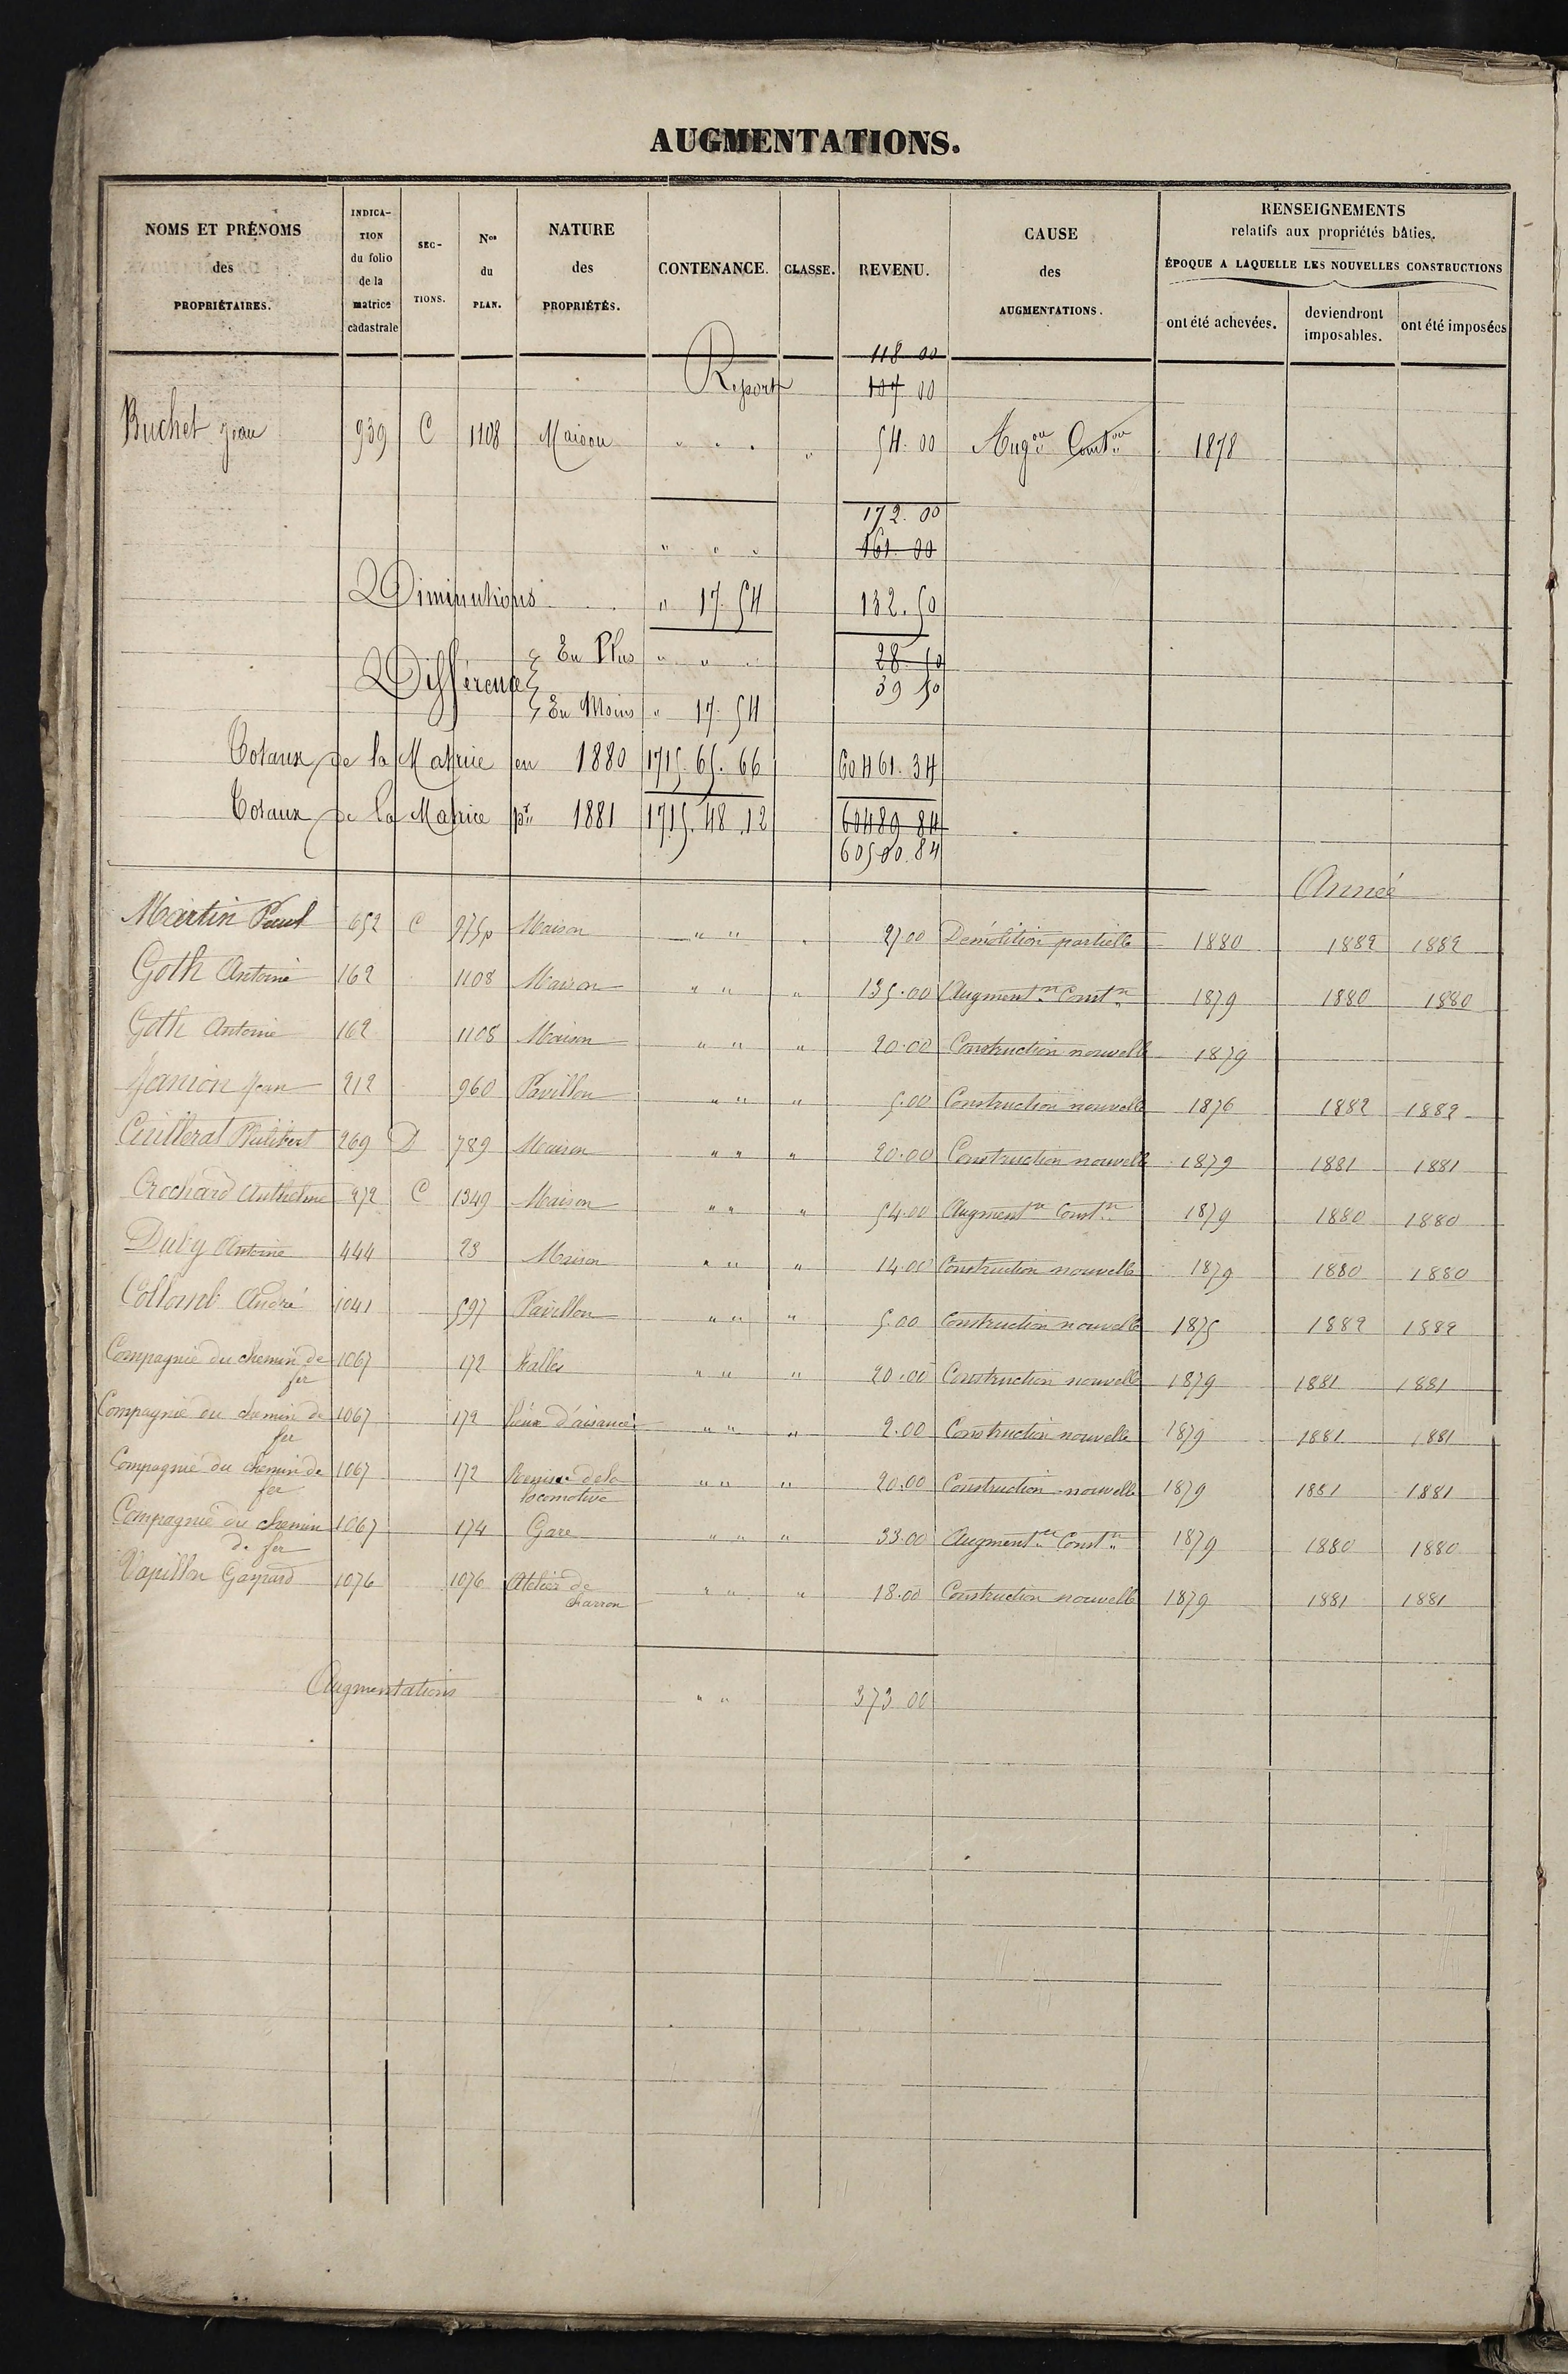 AUGMENTATIONS.
NOMS ET PRÉNOMS des PROPRIÉTAIRES. | INDICA-TION du folio de la matrice cadastrale | SEC-TIONS. | Nos du PLAN. | NATURE des PROPRIÉTÉS. | CONTENANCE. | CLASSE. | REVENU. | CAUSE des AUGMENTATIONS. | RENSEIGNEMENTS relatifs aux propriétés bâties.
ÉPOQUE A LAQUELLE LES NOUVELLES CONSTRUCTIONS
ont été achevées. | deviendront imposables. | ont été imposées
118 00
Report 107 00
Buchet Jean 939 C 1108 Maison " " " " 54.00 Augon Conston 1878
172.00
" " " 161.00
Diminutions " 17.54 132.50
Différence { En Plus " " " 28.50
39 50
{ En Moins " 17.54
Totaux de la Matrice en 1880 1715.65.66 60461.34
Totaux de la Matrice pr 1881 1715.48.12 60489 84
60500.84
Année
Martin Paul 652 C 975p Maison " " " 27.00 Demolition partielle 1880 1882 1882
Goth Antoine 162 1108 Maison " " " 135.00 Augmentn Constn 1879 1880 1880
Goth Antoine 162 1108 Maison " " " 20.00 Construction nouvelle 1879
Janion Jean 212 960 Pavillon " " " 5.00 Construction nouvelle 1876 1882 1882
Cuillerat Philibert 269 D 789 Maison " " " 20.00 Construction nouvelle 1879 1881 1881
Crochard Anthelme 272 C 1349 Maison " " " 54.00 Augmentn Constn 1879 1880 1880
Duby Antoine 444 23 Maison " " " 14.00 Construction nouvelle 1879 1880 1880
Collomb André 1041 597 Pavillon " " " 5.00 Construction nouvelle 1875 1882 1882
Compagnie du chemin de fer 1067 172 halles " " " 20.00 Construction nouvelle 1879 1881 1881
Compagnie du chemin de fer 1067 172 lieux d'aisance " " " 2.00 Construction nouvelle 1879 1881 1881
Compagnie du chemin de fer 1067 172 Remise de la locomotive " " " 20.00 Construction nouvelle 1879 1881 1881
Compagnie du chemin de fer 1067 174 Gare " " " 33.00 Augmentn Constn 1879 1880 1880
Vapillon Gaspard 1076 1076 Atelier de charron " " " 18.00 Construction nouvelle 1879 1881 1881
Augmentations " " 373 00